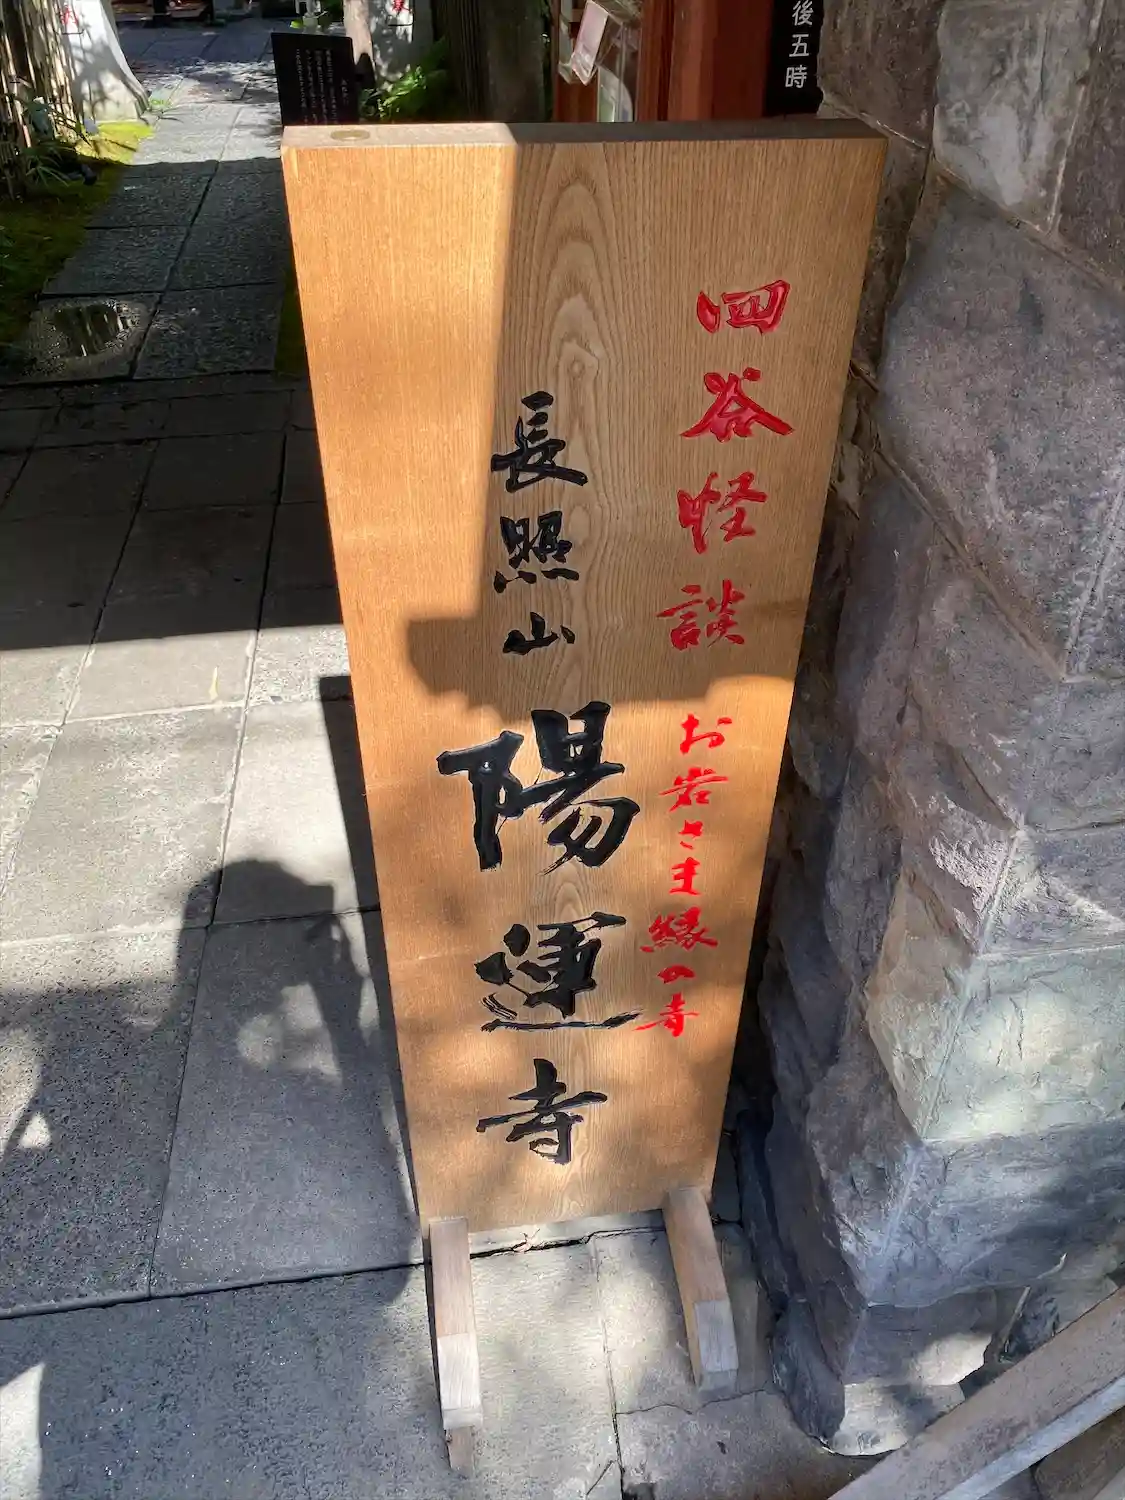 四谷怪談 お岩さま縁の寺
長照山 陽運寺
後五時